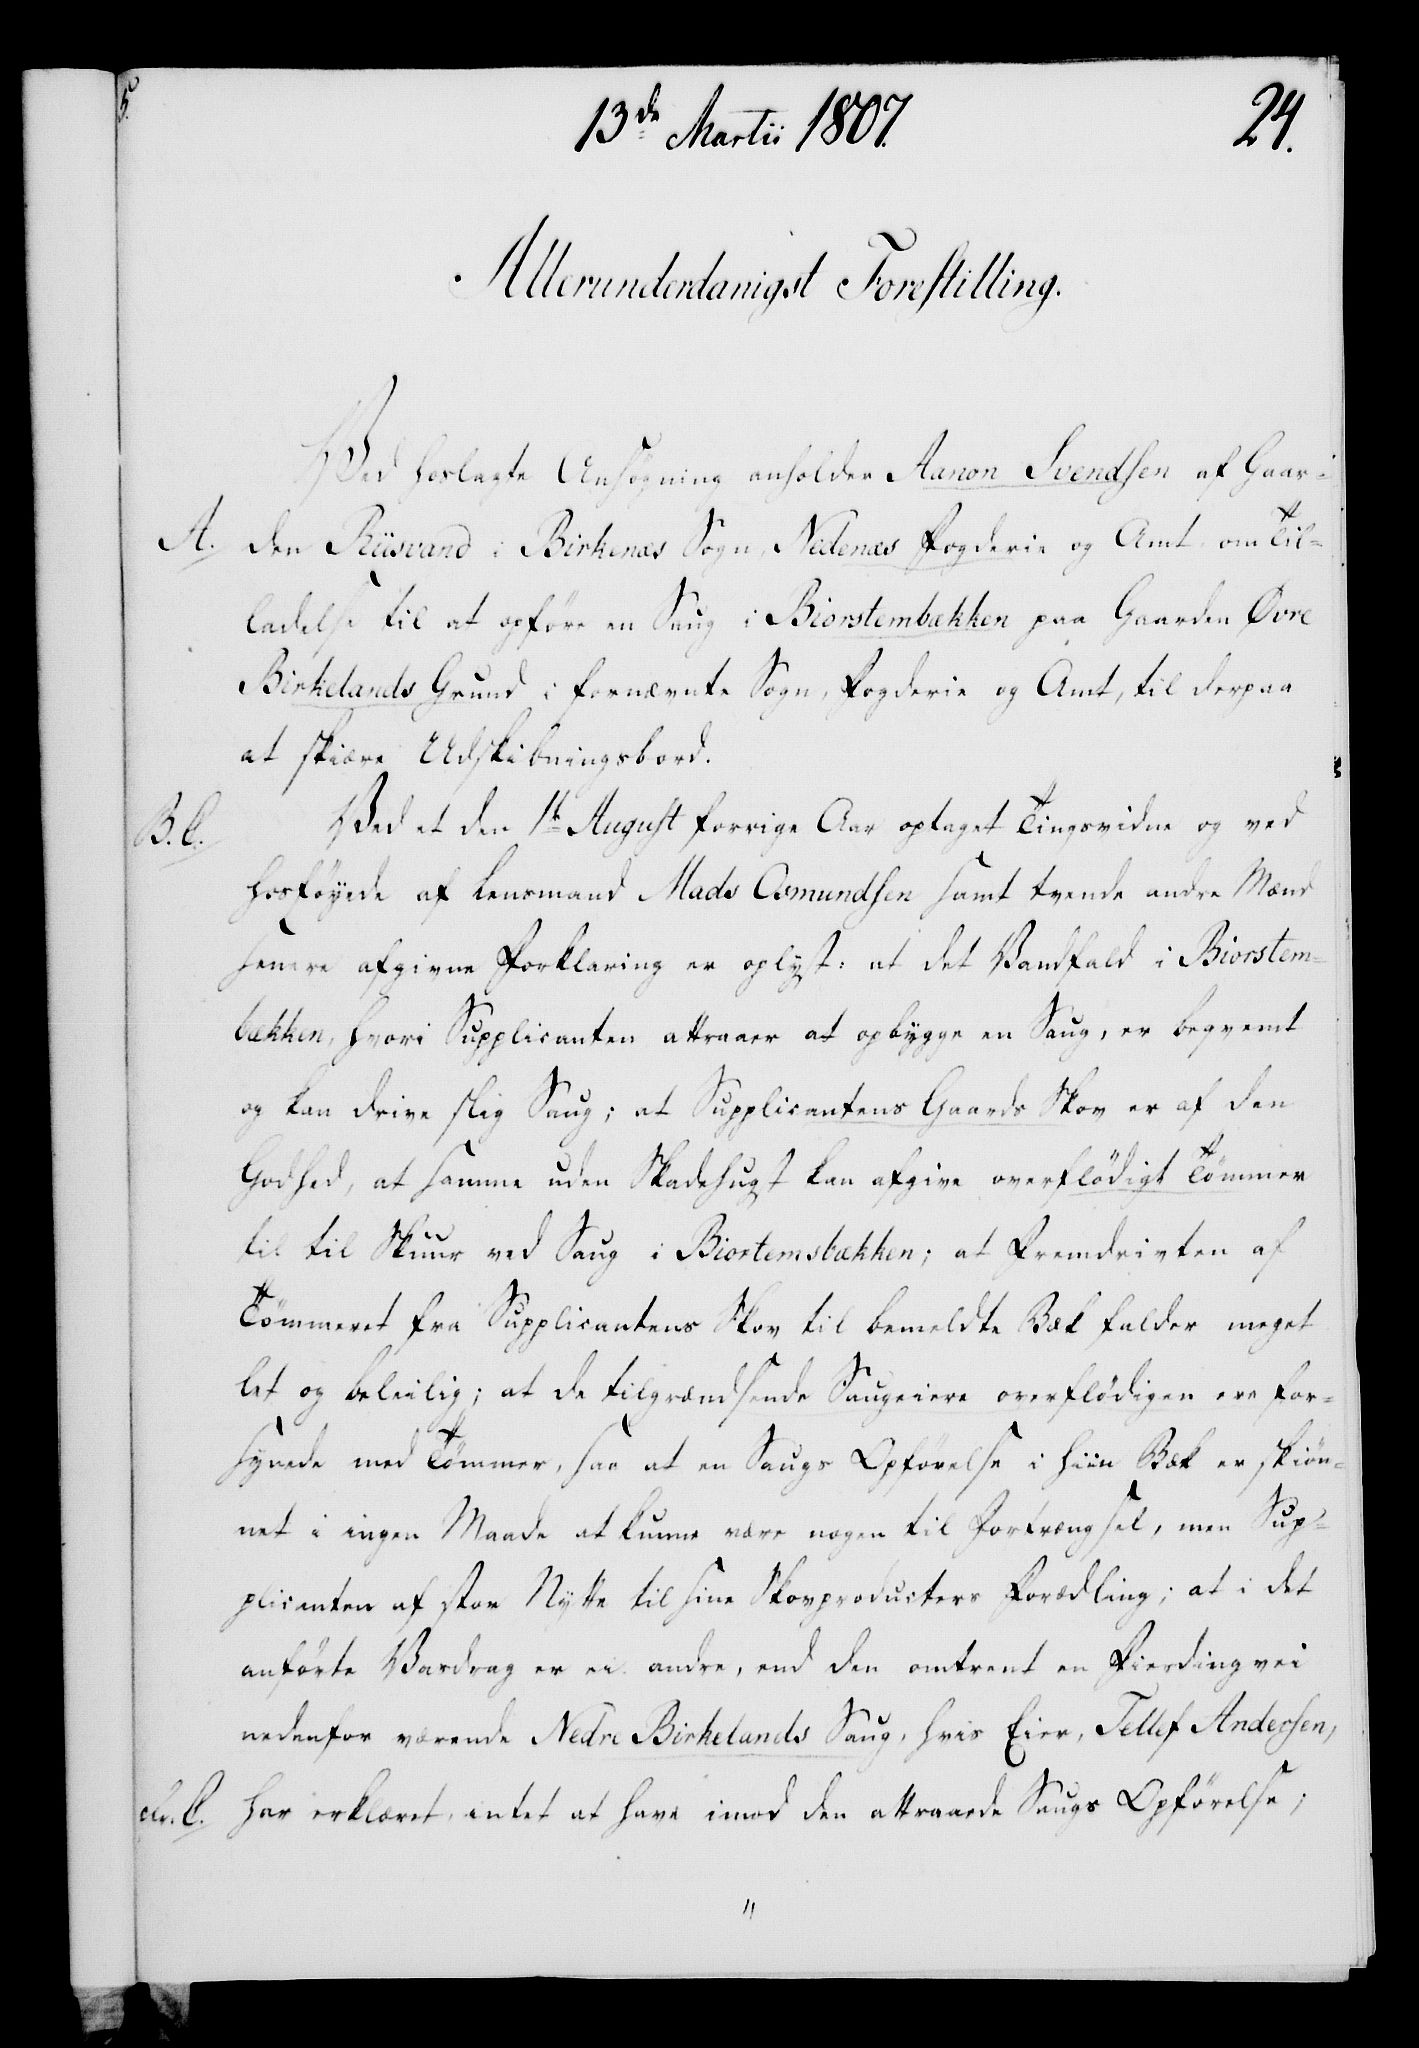 5.
13de Martii 1807.
24.
Allerunderdanigst Forestilling.
Ved hoslagte Ansøgning anholder Aanon Svendsen af Gaar-
A. den Riisvand i Birkenæs Sogn, Nedenæs Fogderie og Amt om Til-
ladelse til at opföre en Saug i Biorstembækken paa Gaarden Øvre
Birkelands Grund i fornævnte Sogn, Fogderie og Amt, til derpaa
at skiære Udskibningsbord.
B. C. Ved et den 1te August forrige Aar optaget Tingsvidne og ved
hosföyede af Lensmand Mads Osmundsen samt tvende andre Mænd
senere afgivne Forklaring er oplyst: at det Vandfald i Biorstem-
bækken, hvori Supplicanten attraaer at opbygge en Saug, er beqvemt
og kan drive slig Saug; at Supplicantens Gaards Skov er af den
Godhed, at samme uden Skadehugst kan afgive overflödigt Tömmer
til til Skuur ved Saug i Biortemsbækken; at Fremdrivten af
Tömmeret fra Supplicantens Skov til bemeldte Bæk falder meget
let og beleilig; at de tilgrændsende Saugeiere overflödigen ere for-
synede med Tömmer, saa at en Saugs Opförelse i hiin Bæk er skiön-
net i ingen Maade at kunne være nogen til Fortrængsel, men Sup-
plicanten af stor Nytte til sine Skovproducters Forædling; at i det
anförte Vasdrag er ei andre, end den omtrent en Fierding vei
nedenfor værende Nedre Birkelands Saug, hvis Eier, Tellef Andersen,
cfr. C. har erklæret intet at have imod den attraaede Saugs Opförelse;
"